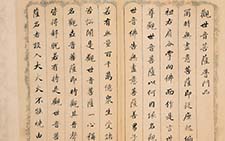 觀世音菩薩普門品
爾時無盡意菩薩即從座起偏
袒右肩合掌向佛而作是言
世尊觀世音菩薩以何因緣名觀
世音佛告無盡意菩薩善男子
若有無量百千萬億衆生受諸
苦惱聞是觀世音菩薩一心稱
名觀世音菩薩即時觀其音聲
皆得解脫若有持是觀世音菩
薩名者設入大火火不能燒由